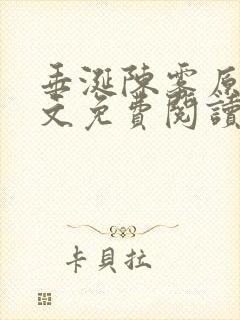 垂涎陳霧原
文免費閱讀
卡貝拉